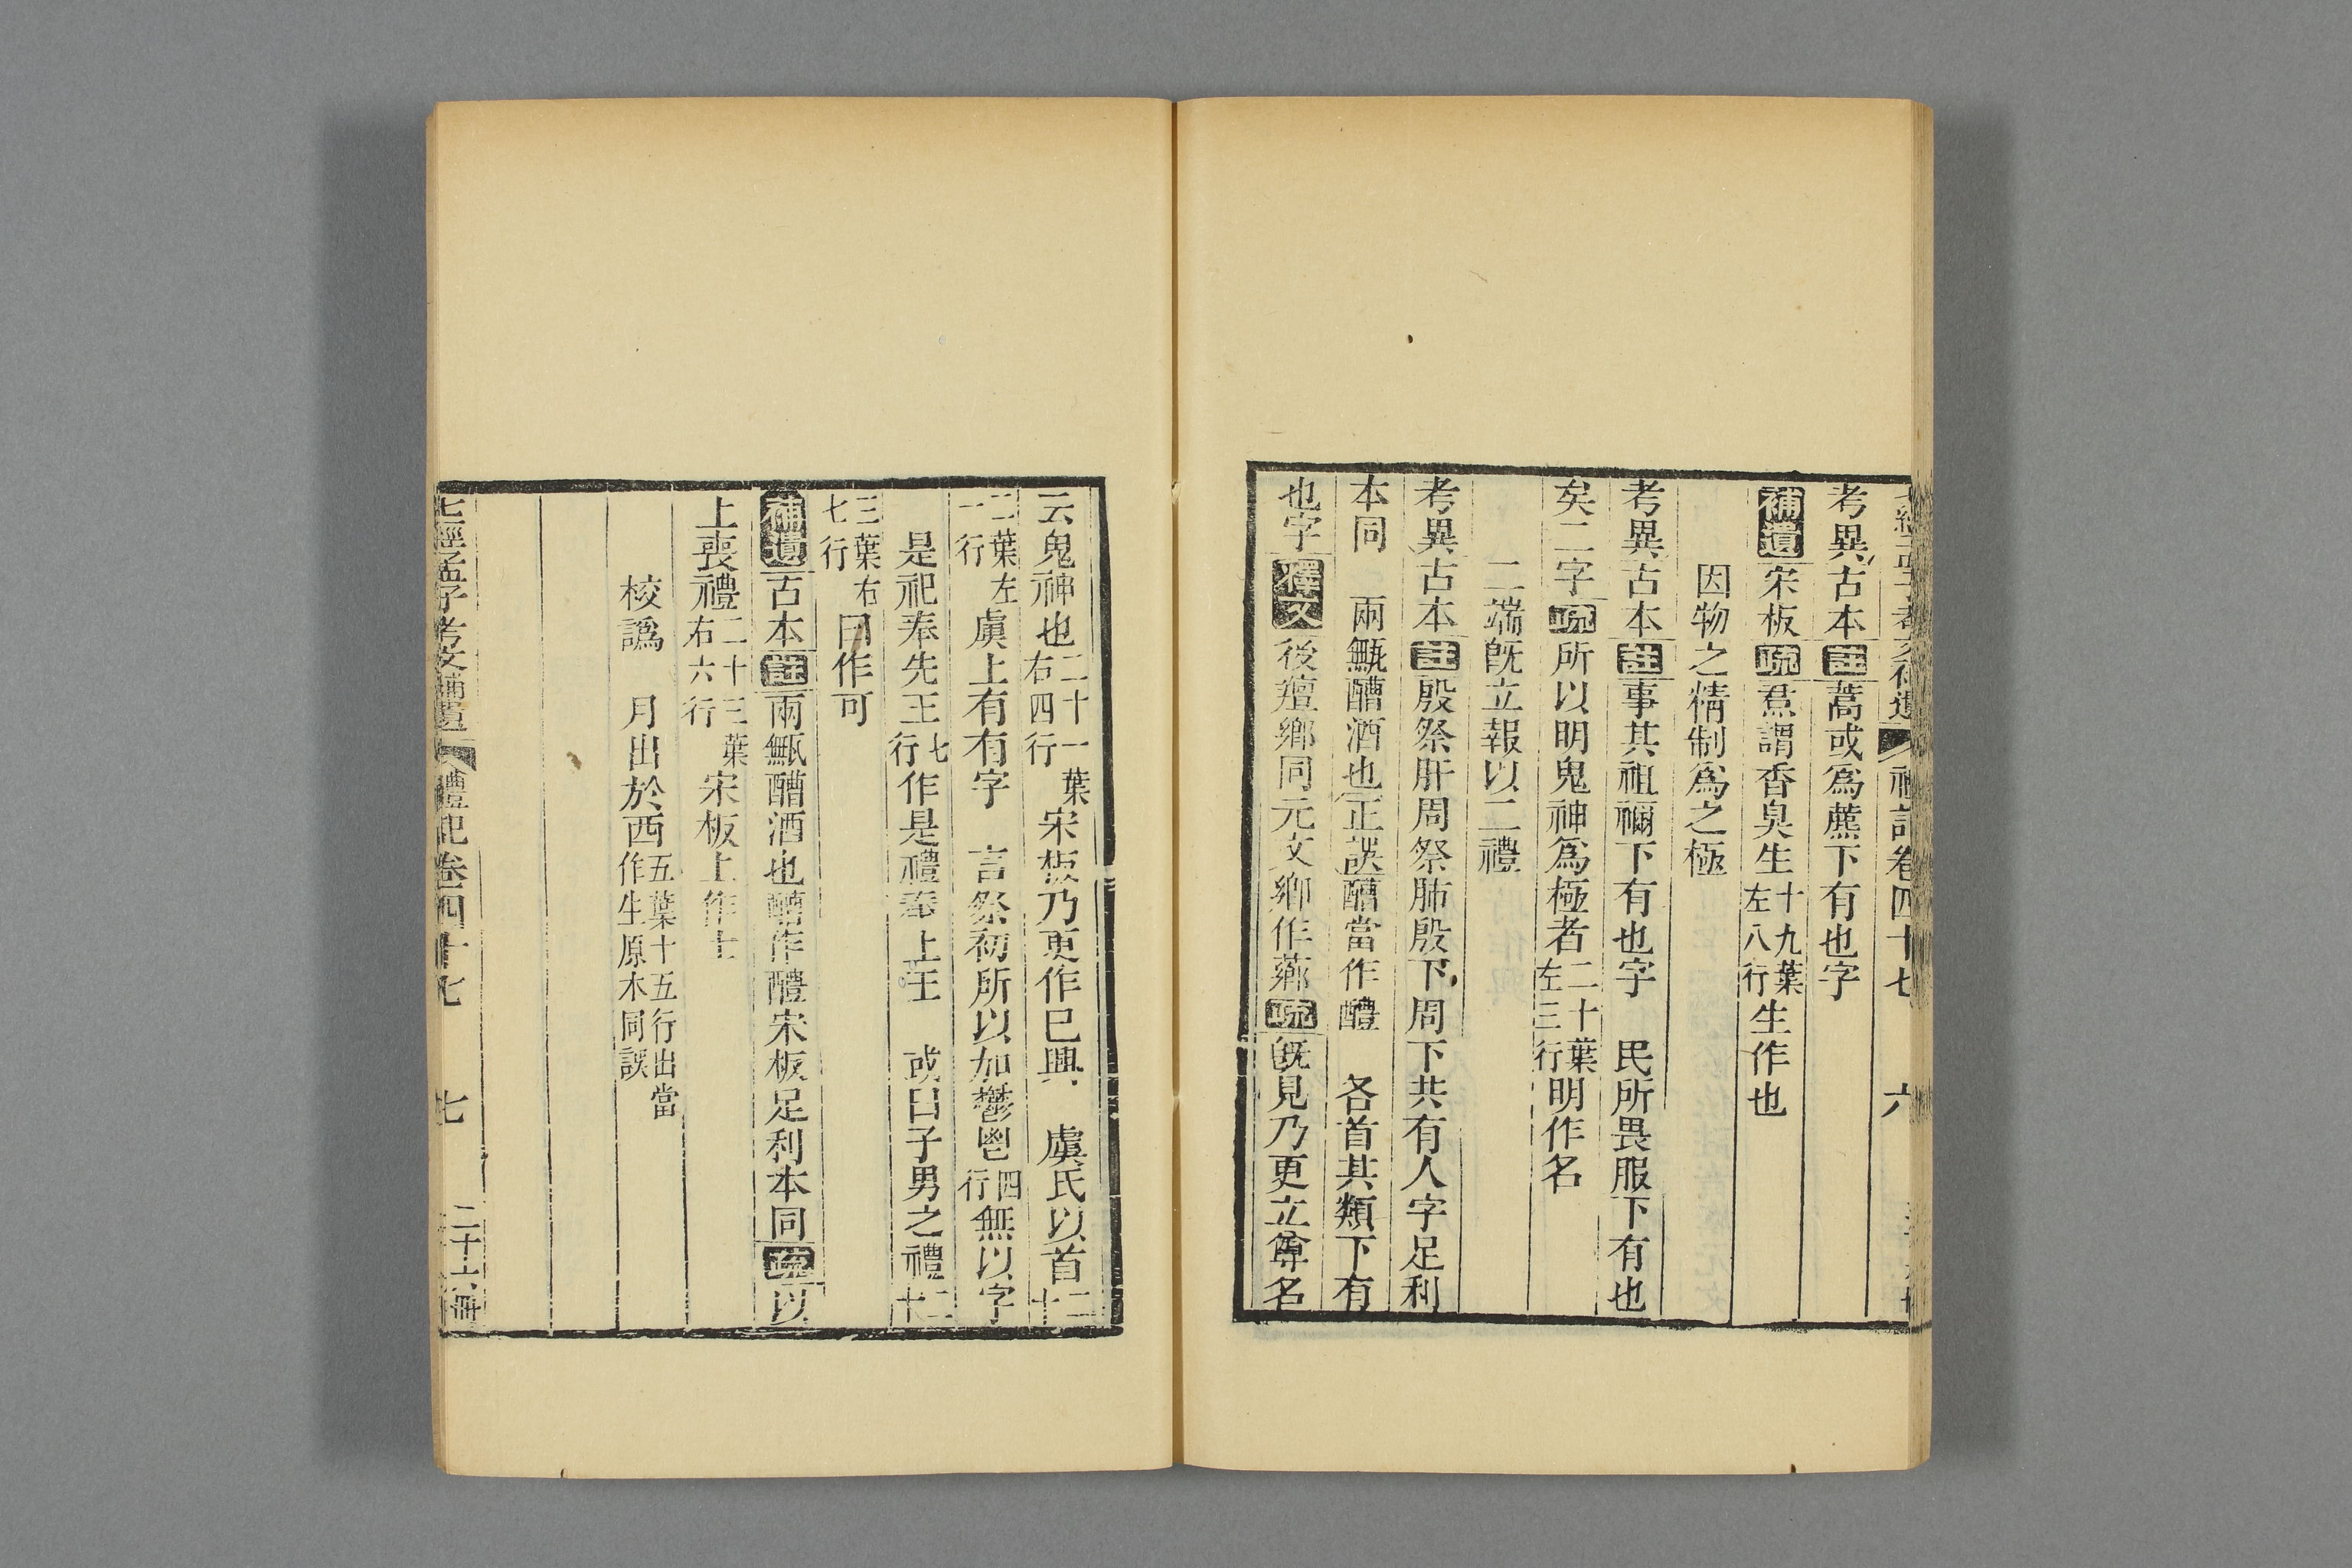 禮記卷四十七　六
考異古本註蒿或爲藨下有也字
補遺宋板疏焄謂香臭生十九葉左八行生作也
因物之精制爲之極
考異古本註事其祖禰下有也字　民所畏服下有也
矣二字疏所以明鬼神爲極者二十葉左三行明作名
二端旣立報以二禮
考異古本註殷祭肝周祭肺殷下周下共有人字足利
本同　兩甒醩酒也正誤醩當作醴　各首其類下有
也字釋文後羶鄉同元文鄉作薌疏旣見乃更立尊名
云鬼神也二十一葉右四行宋板乃更作巳興　虞氏以首二十
二葉左一行虞上有有字　言祭初所以加鬱鬯四行無以字
是祀奉先王七行作是禮奉上王　或曰子男之禮二十
三葉右七行曰作可
補遺古本註兩甒醩酒也醩作醴宋板足利本同疏以
上喪禮二十三葉右六行宋板上作士
校譌　月出於西五葉十五行出當作生原本同誤
七經孟子考文補遺　禮記卷四十七　七　二十六冊